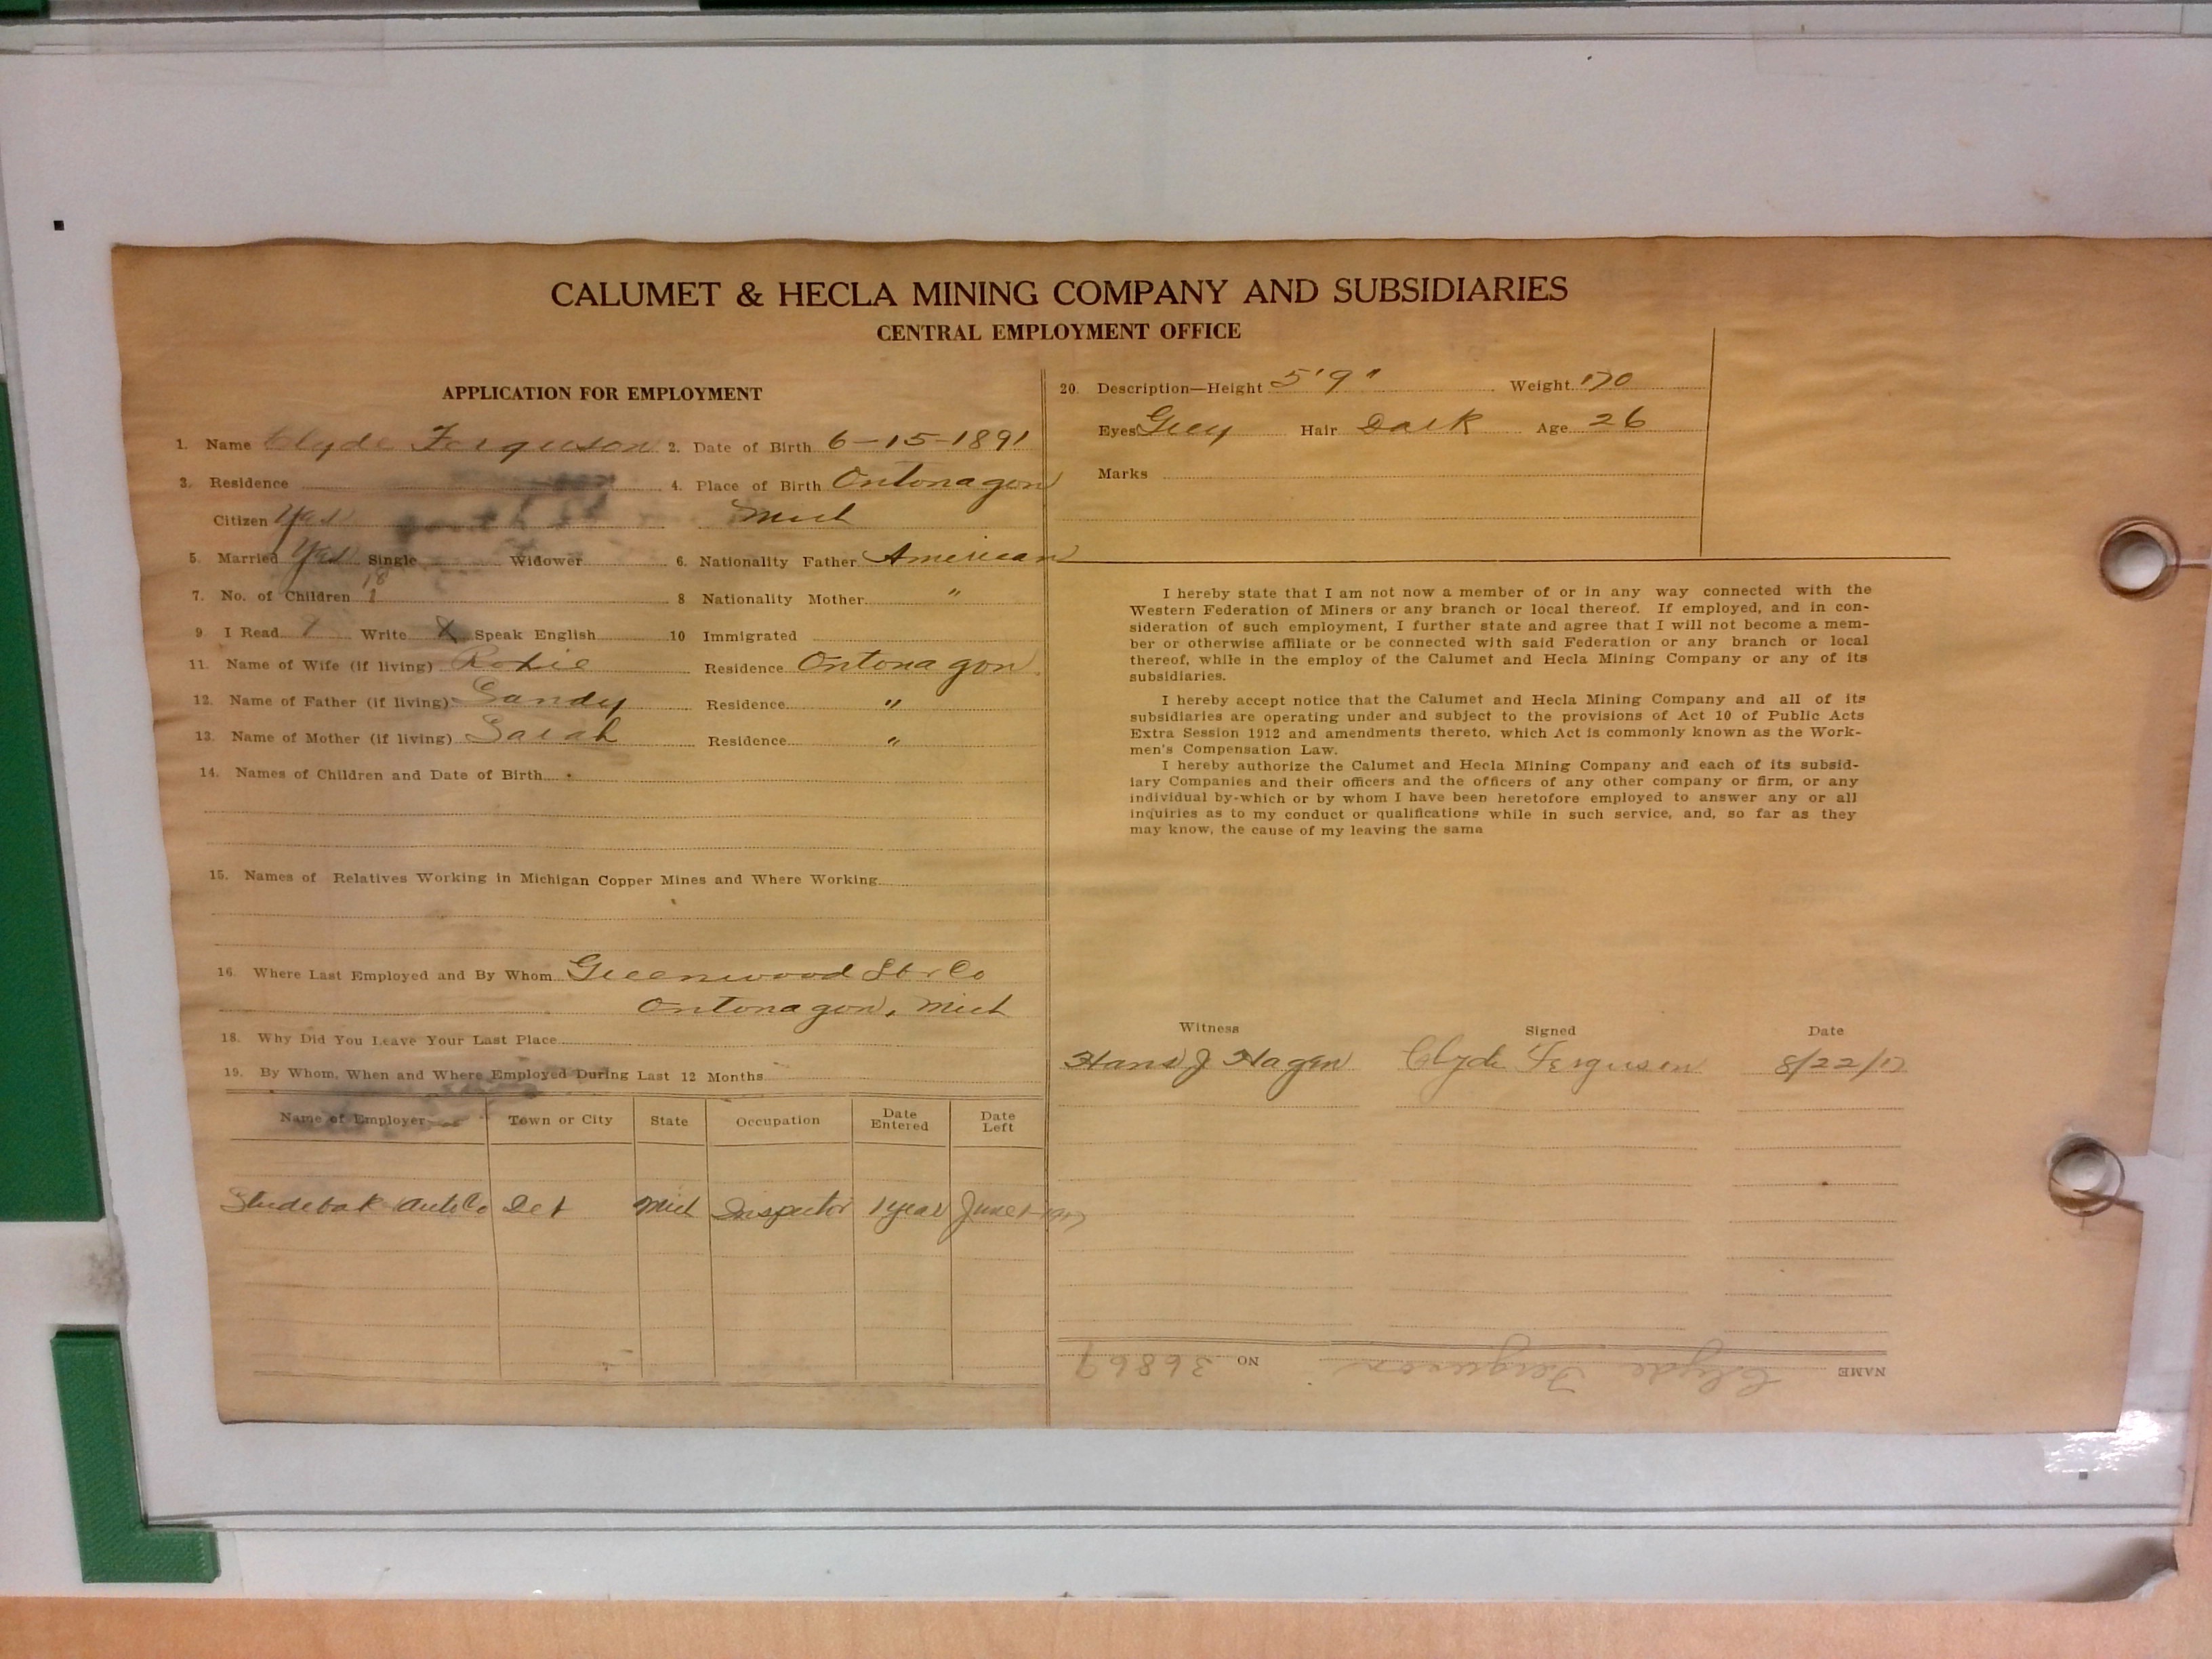 CALUMET & HECLA MINING COMPANY AND SUBSIDIARIES
CENTRAL EMPLOYMENT OFFICE
APPLICATION FOR EMPLOYMENT
1. Name Clyde Ferguson 2. Date of Birth 6-15-1891
3. Residence 4. Place of Birth Ontonagon
Citizen Yes Mich
5. Married Yes Single Widower 6. Nationality Father American
7. No. of Children 8 Nationality Mother "
9. I Read Write Speak English 10 Immigrated
11. Name of Wife (if living) Residence Ontonagon
12. Name of Father (if living) Sandy Residence "
13. Name of Mother (if living) Sarah Residence "
14. Names of Children and Date of Birth
15. Names of Relatives Working in Michigan Copper Mines and Where Working
16. Where Last Employed and By Whom Greenwood Co
Ontonagon, Mich
18. Why Did You Leave Your Last Place
19. By Whom, When and Where Employed During Last 12 Months
Name of Employer Town or City State Occupation Date Entered Date Left
Studebak Auto Co Det Mich Inspector 1 year June 1-1917
20. Description—Height 5'9" Weight 170
Eyes Grey Hair Dark Age 26
Marks
I hereby state that I am not now a member of or in any way connected with the
Western Federation of Miners or any branch or local thereof. If employed, and in con-
sideration of such employment, I further state and agree that I will not become a mem-
ber or otherwise affiliate or be connected with said Federation or any branch or local
thereof, while in the employ of the Calumet and Hecla Mining Company or any of its
subsidiaries.
I hereby accept notice that the Calumet and Hecla Mining Company and all of its
subsidiaries are operating under and subject to the provisions of Act 10 of Public Acts
Extra Session 1912 and amendments thereto, which Act is commonly known as the Work-
men's Compensation Law.
I hereby authorize the Calumet and Hecla Mining Company and each of its subsid-
iary Companies and their officers and the officers of any other company or firm, or any
individual by-which or by whom I have been heretofore employed to answer any or all
inquiries as to my conduct or qualifications while in such service, and, so far as they
may know, the cause of my leaving the same
Witness Signed Date
Hans J Hagen Clyde Ferguson 8/22/17
NAME Clyde Ferguson NO 36869